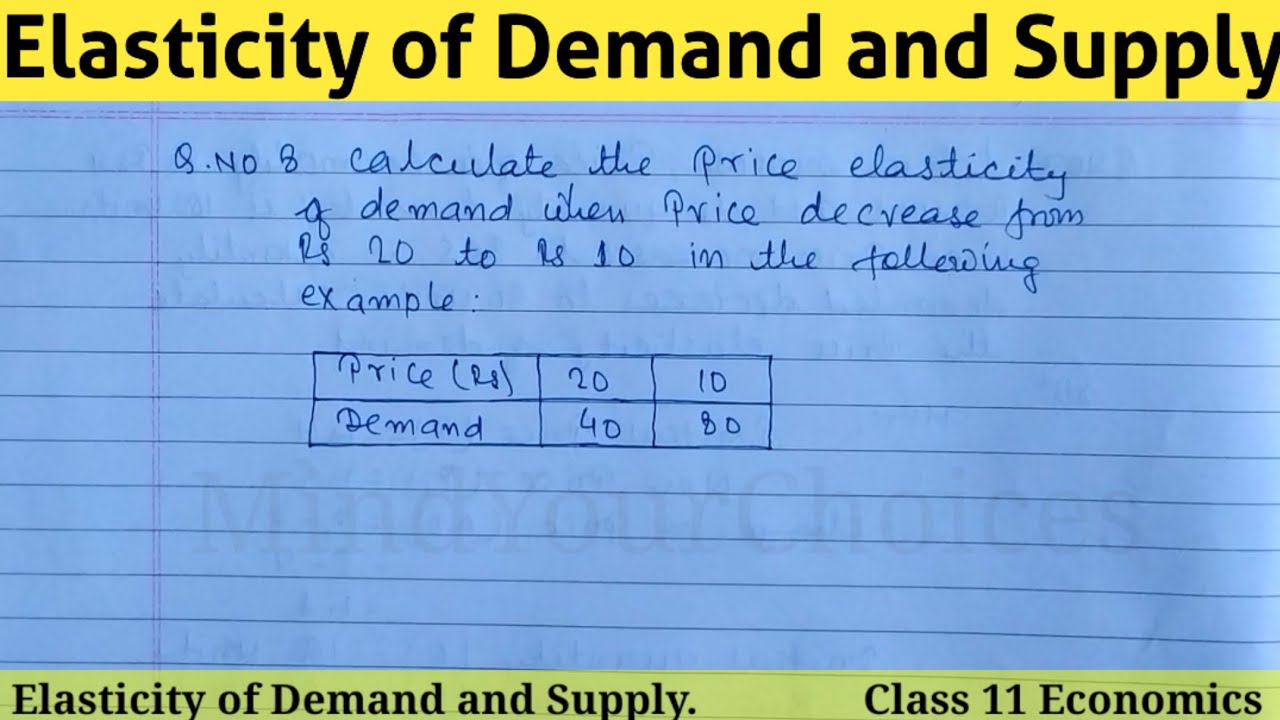 Elasticity of Demand and Supply
Q.NO 8 calculate the Price elasticity
of demand when Price decrease from
Rs 20 to Rs 10 in the following
example:
Price (Rs) 20 10
Demand 40 80
MindYourChoices
Elasticity of Demand and Supply. Class 11 Economics